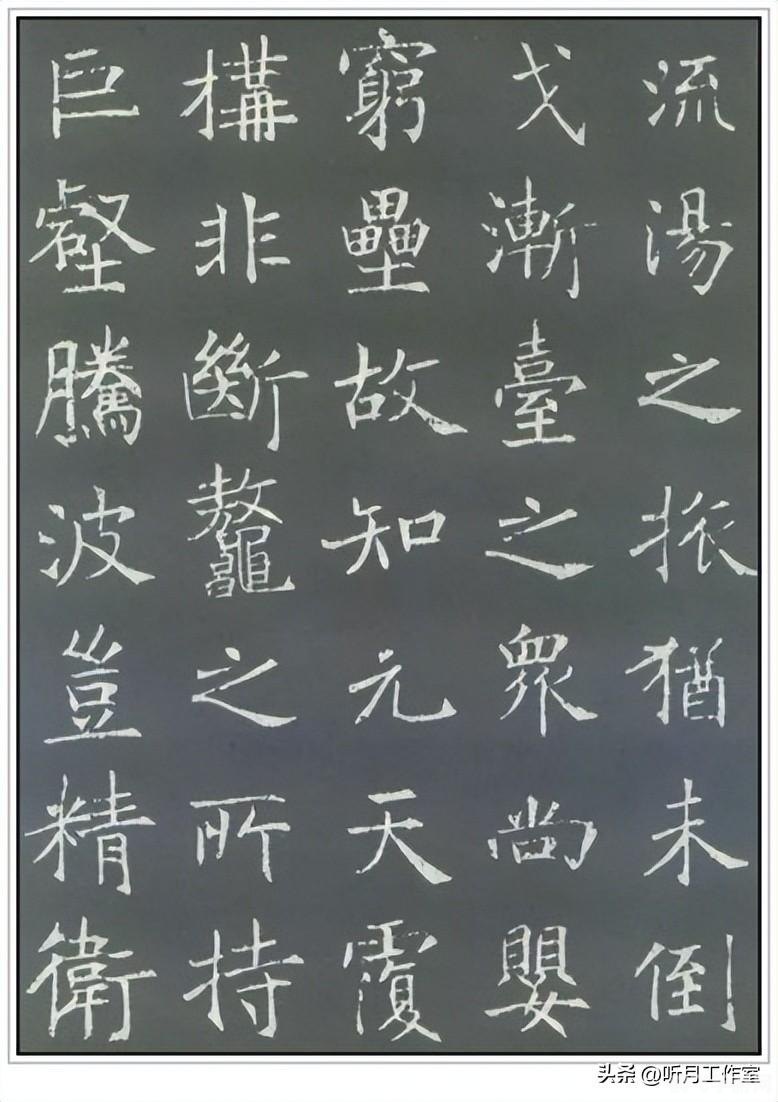 流湯之振猶未倒
戈漸臺之眾尚嬰
窮壘故知元天覆
構非斷鼇之所持
巨壑騰波豈精衛
头条 @听月工作室